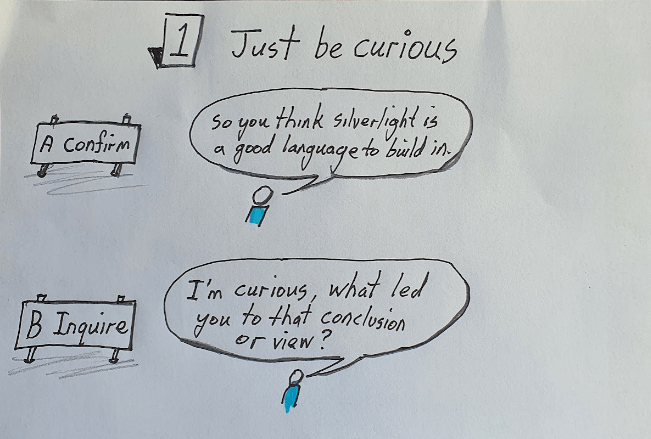 1 Just be curious
A Confirm
So you think silverlight is
a good language to build in.
B Inquire
I'm curious, what led
you to that conclusion
or view?